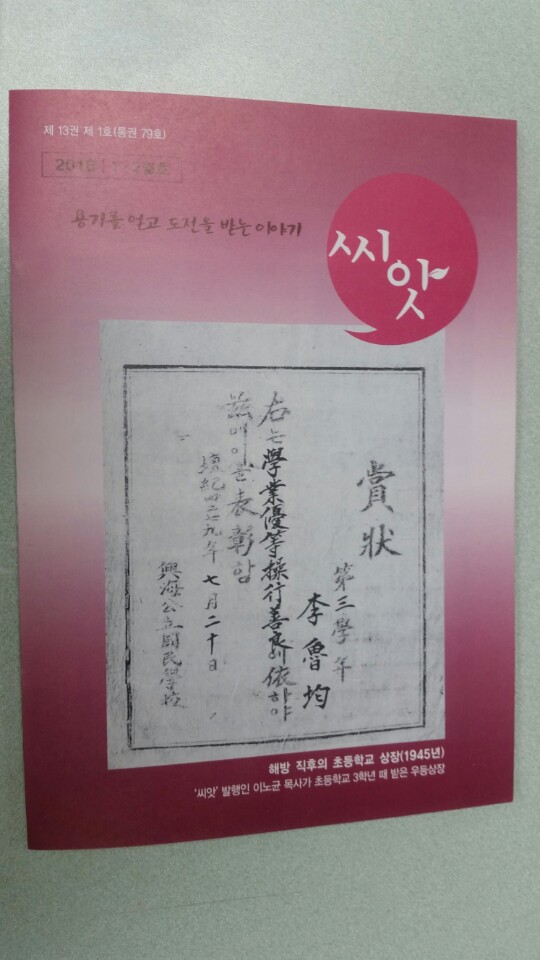 제 13권 제 1호(통권 79호)
용기를 얻고 도전을 받는 이야기
씨앗
賞狀
第三學年
李魯均
右는學業優等操行善良依하야
玆에이를表彰함
檀紀四二七九年七月二十日
興海公立國民學校
해방 직후의 초등학교 상장(1945년)
'씨앗' 발행인 이노균 목사가 초등학교 3학년 때 받은 우등상장